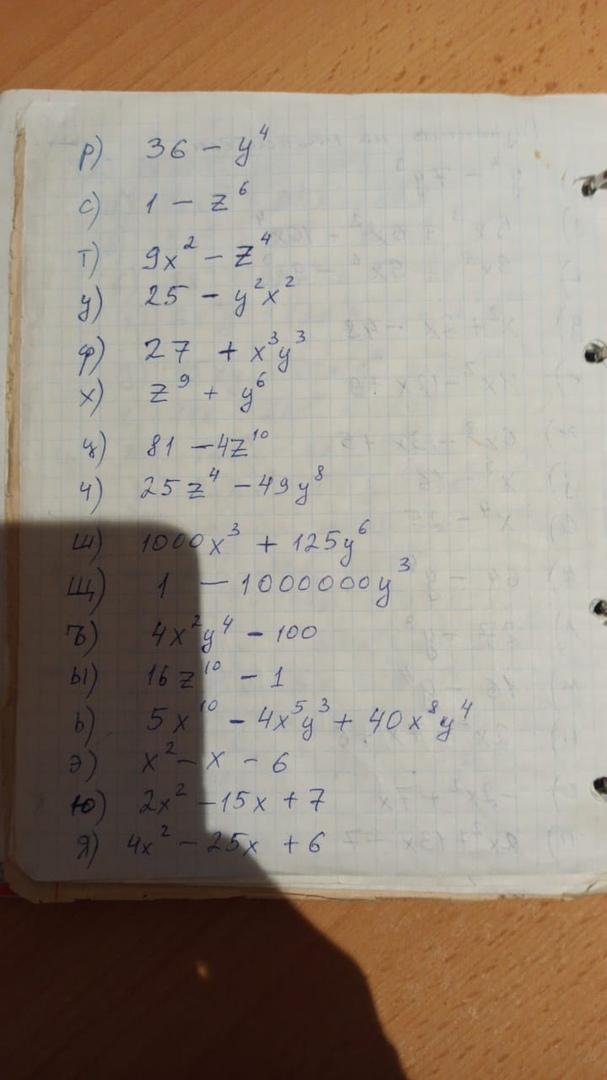 р) 36 - y⁴
с) 1 - z⁶
т) 9x² - z⁴
у) 25 - y²x²
ф) 27 + x³y³
х) z⁹ + y⁶
ц) 81 - 4z¹⁰
ч) 25z⁴ - 49y⁸
ш) 1000x³ + 125y⁶
щ) 1 - 1000000y³
ъ) 4x²y⁴ - 100
ы) 16z¹⁰ - 1
ь) 5x¹⁰ - 4x⁵y³ + 40x⁸y⁴
э) x² - x - 6
ю) 2x² - 15x + 7
я) 4x² - 25x + 6